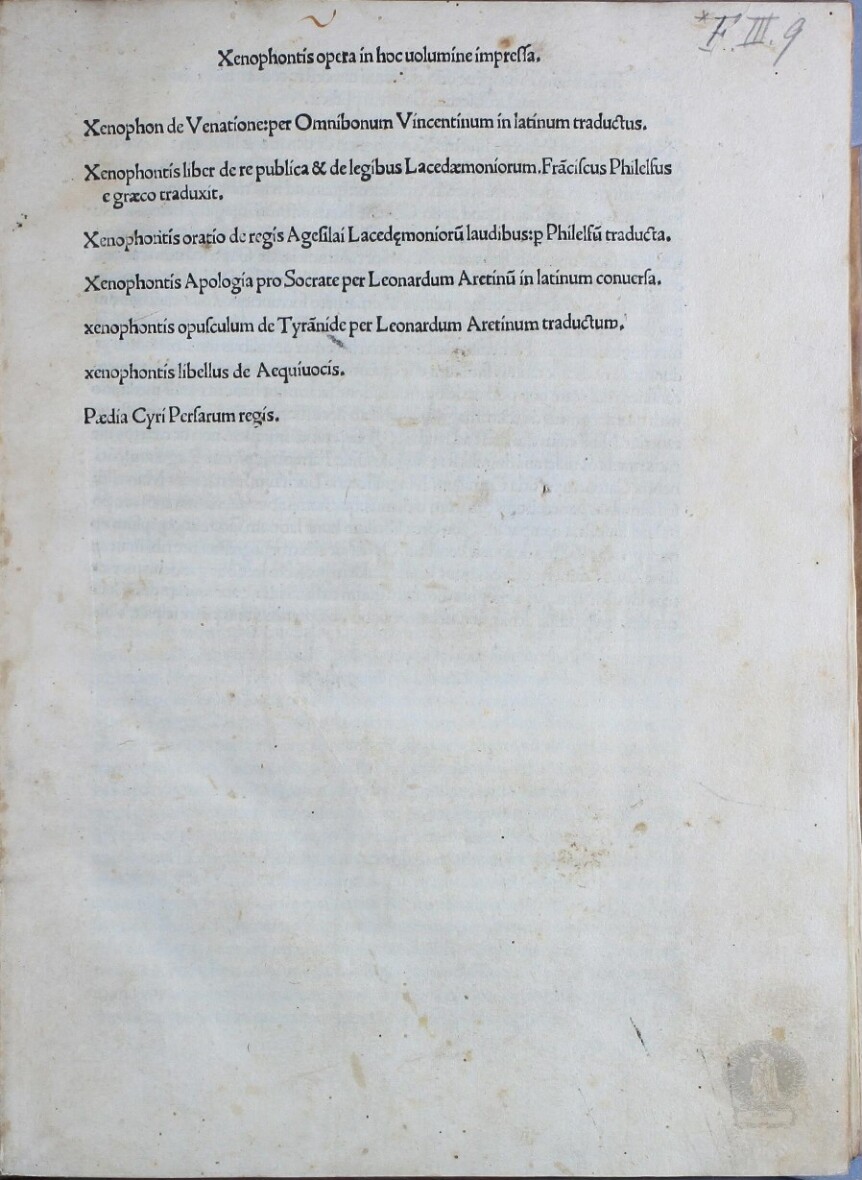 F. III. 9
Xenophontis opera in hoc uolumine impreſſa.
Xenophon de Venatione:per Omnibonum Vincentinum in latinum traductus.
Xenophontis liber de re publica & de legibus Lacedæmoniorum.Frãciſcus Philelfus
e græco traduxit.
Xenophontis oratio de regis Ageſilai Lacedęmoniorũ laudibus:ꝑ Philelfũ traducta.
Xenophontis Apologia pro Socrate per Leonardum Aretinũ in latinum conuerſa.
xenophontis opuſculum de Tyrãnide per Leonardum Aretinum traductum.
xenophontis libellus de Aequiuocis.
Pædia Cyri Perſarum regis.